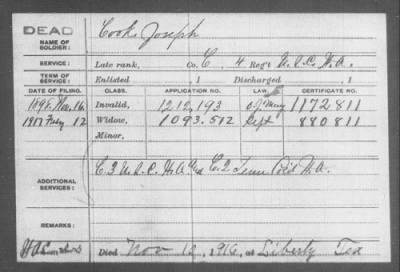 DEAD
NAME OF SOLDIER: Cook, Joseph
SERVICE: Late rank, Co. C, 4 Reg't U.S.C.H.A.
TERM OF SERVICE: Enlisted , 1 Discharged , 1
DATE OF FILING. CLASS. APPLICATION NO. LAW. CERTIFICATE NO.
1898 Nov. 16 Invalid, 1212,193 1172811
1917 Feby 12 Widow, 1093.512 Sept 880811
Minor,
ADDITIONAL SERVICES: C. 3 U.S.C.H.A. and C. 2 Tenn Cold H.A.
REMARKS:
Died Nov 12, 1916, at Liberty Tex